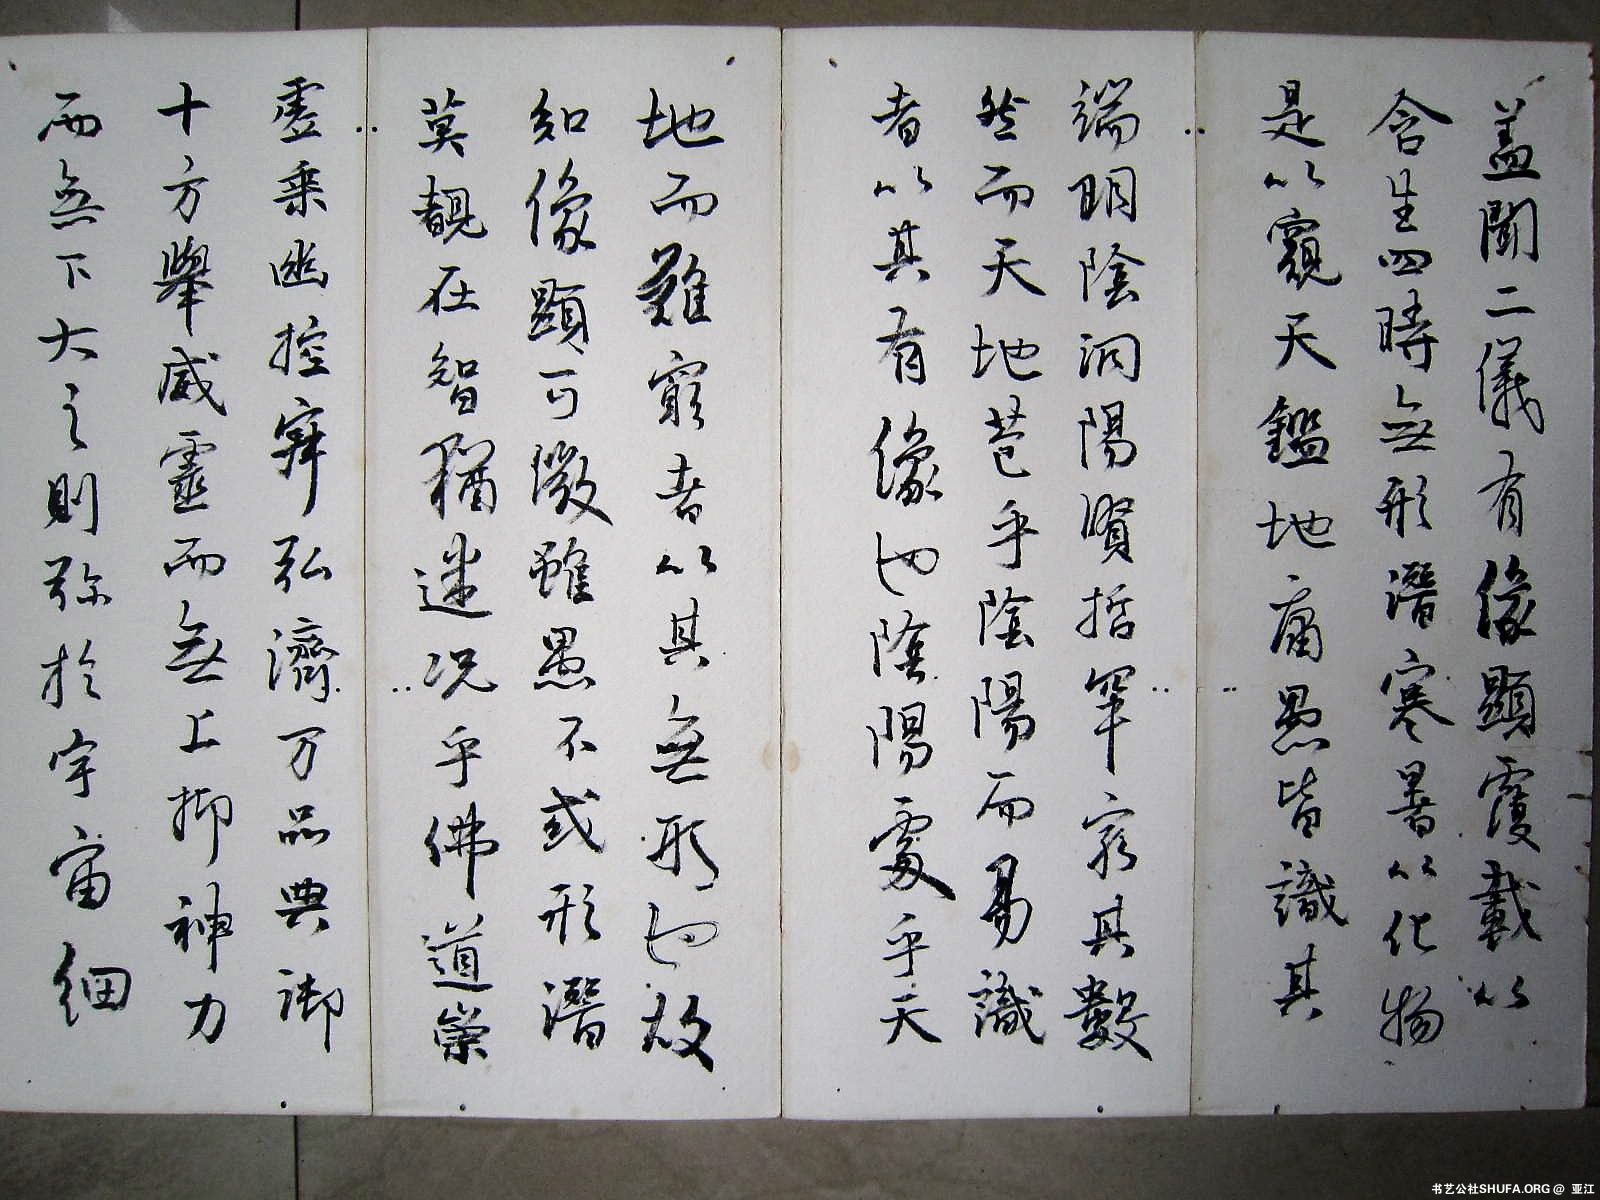 蓋聞二儀有像顯覆載以
含生四時無形潛寒暑以化物
是以窺天鑑地庸愚皆識其
端明陰洞陽賢哲罕窮其數
然而天地苞乎陰陽而易識
者以其有像也陰陽處乎天
地而難窮者以其無形也故
知像顯可徵雖愚不惑形潛
莫覩在智猶迷況乎佛道崇
虛乘幽控寂弘濟万品典御
十方舉威靈而無上抑神力
而無下大之則彌於宇宙細
书艺公社SHUFA.ORG @ 亚江